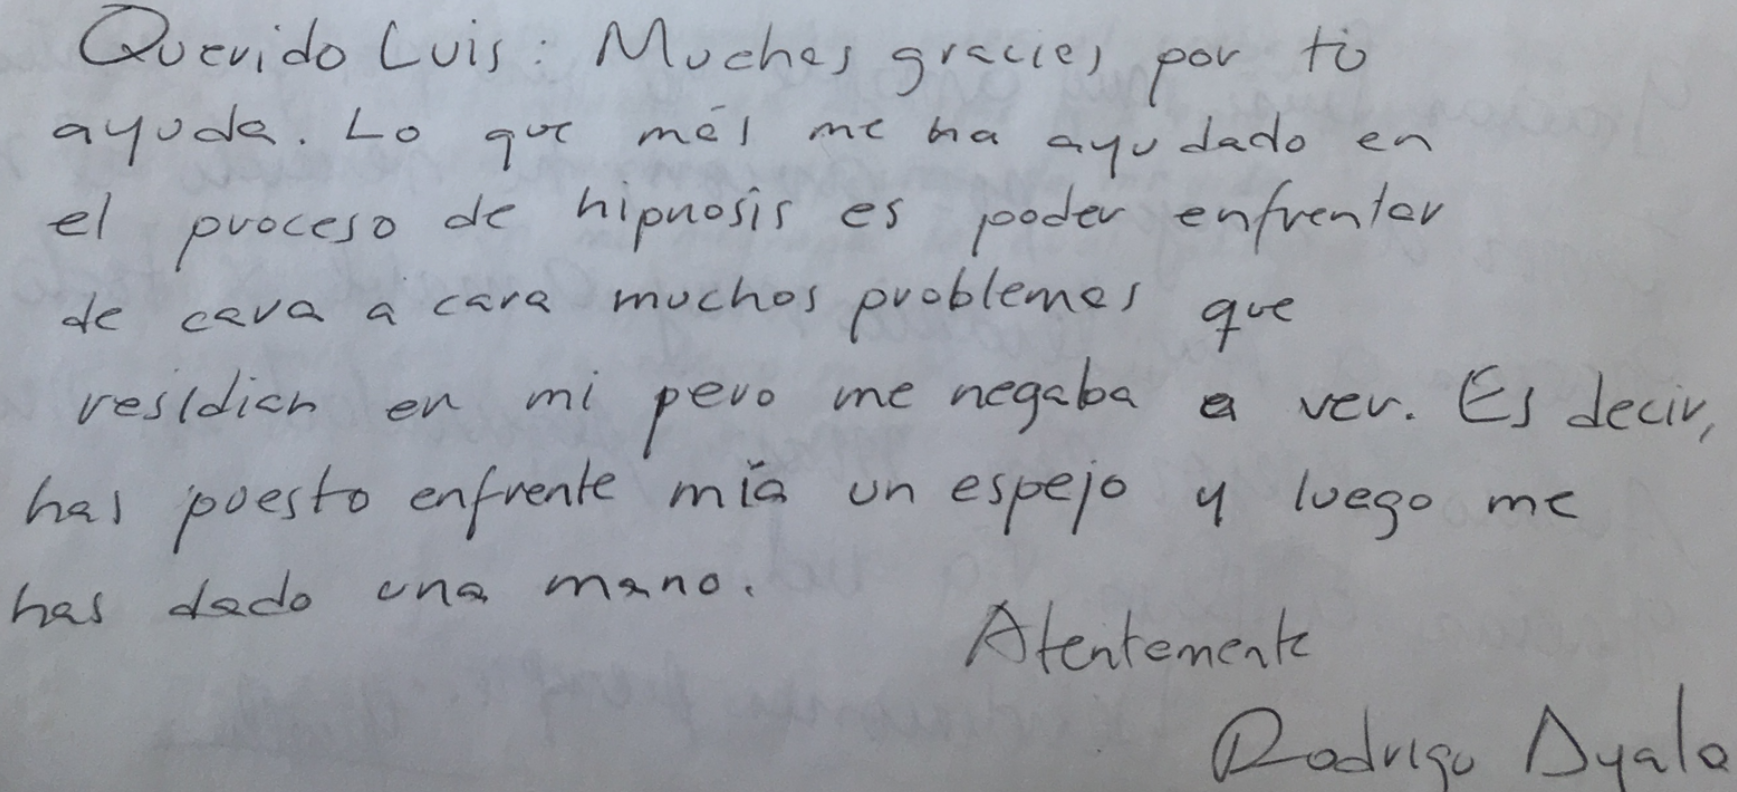 Querido Luis: Muchas gracias por tú
ayuda. Lo que más me ha ayudado en
el proceso de hipnosis es poder enfrentar
de cara a cara muchos problemas que
residian en mi pero me negaba a ver. Es decir,
has puesto enfrente mía un espejo y luego me
has dado una mano.
Atentemente
Rodrigo Ayala